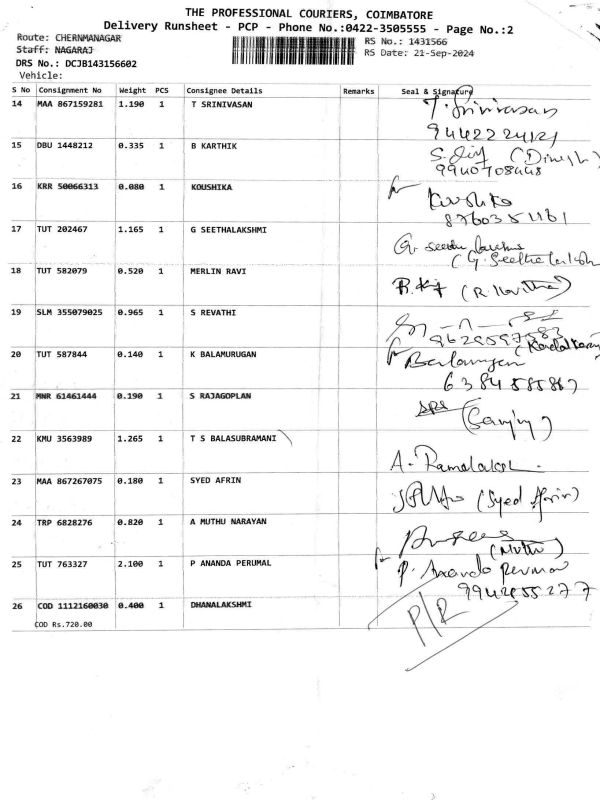 THE PROFESSIONAL COURIERS, COIMBATORE
Delivery Runsheet - PCP - Phone No.:0422-3505555 - Page No.:2
Route: CHERNMANAGAR RS No.: 1431566
Staff: NAGARAJ RS Date: 21-Sep-2024
DRS No.: DCJB143156602
Vehicle:
S No Consignment No Weight PCS Consignee Details Remarks Seal & Signature
14 MAA 867159281 1.190 1 T SRINIVASAN T. Srinivasan
9442224121
15 DBU 1448212 0.335 1 B KARTHIK (Dinesh)
9940708448
16 KRR 50066313 0.080 1 KOUSHIKA Koushika
8760351161
17 TUT 202467 1.165 1 G SEETHALAKSHMI G. Seethalakshmi
(G. Seethalakshmi
18 TUT 582079 0.520 1 MERLIN RAVI (R Kavitha)
19 SLM 355079025 0.965 1 S REVATHI
20 TUT 587844 0.140 1 K BALAMURUGAN Balamurugan
21 MNR 61461444 0.190 1 S RAJAGOPLAN (Sanjay)
22 KMU 3563989 1.265 1 T S BALASUBRAMANI A. Ramalakshmi
23 MAA 867267075 0.180 1 SYED AFRIN (Syed Afrin)
24 TRP 6828276 0.820 1 A MUTHU NARAYAN (Muthu)
25 TUT 763327 2.100 1 P ANANDA PERUMAL P. Ananda Perumal
9942855277
26 COD 1112160030 0.400 1 DHANALAKSHMI P/R
COD Rs.720.00